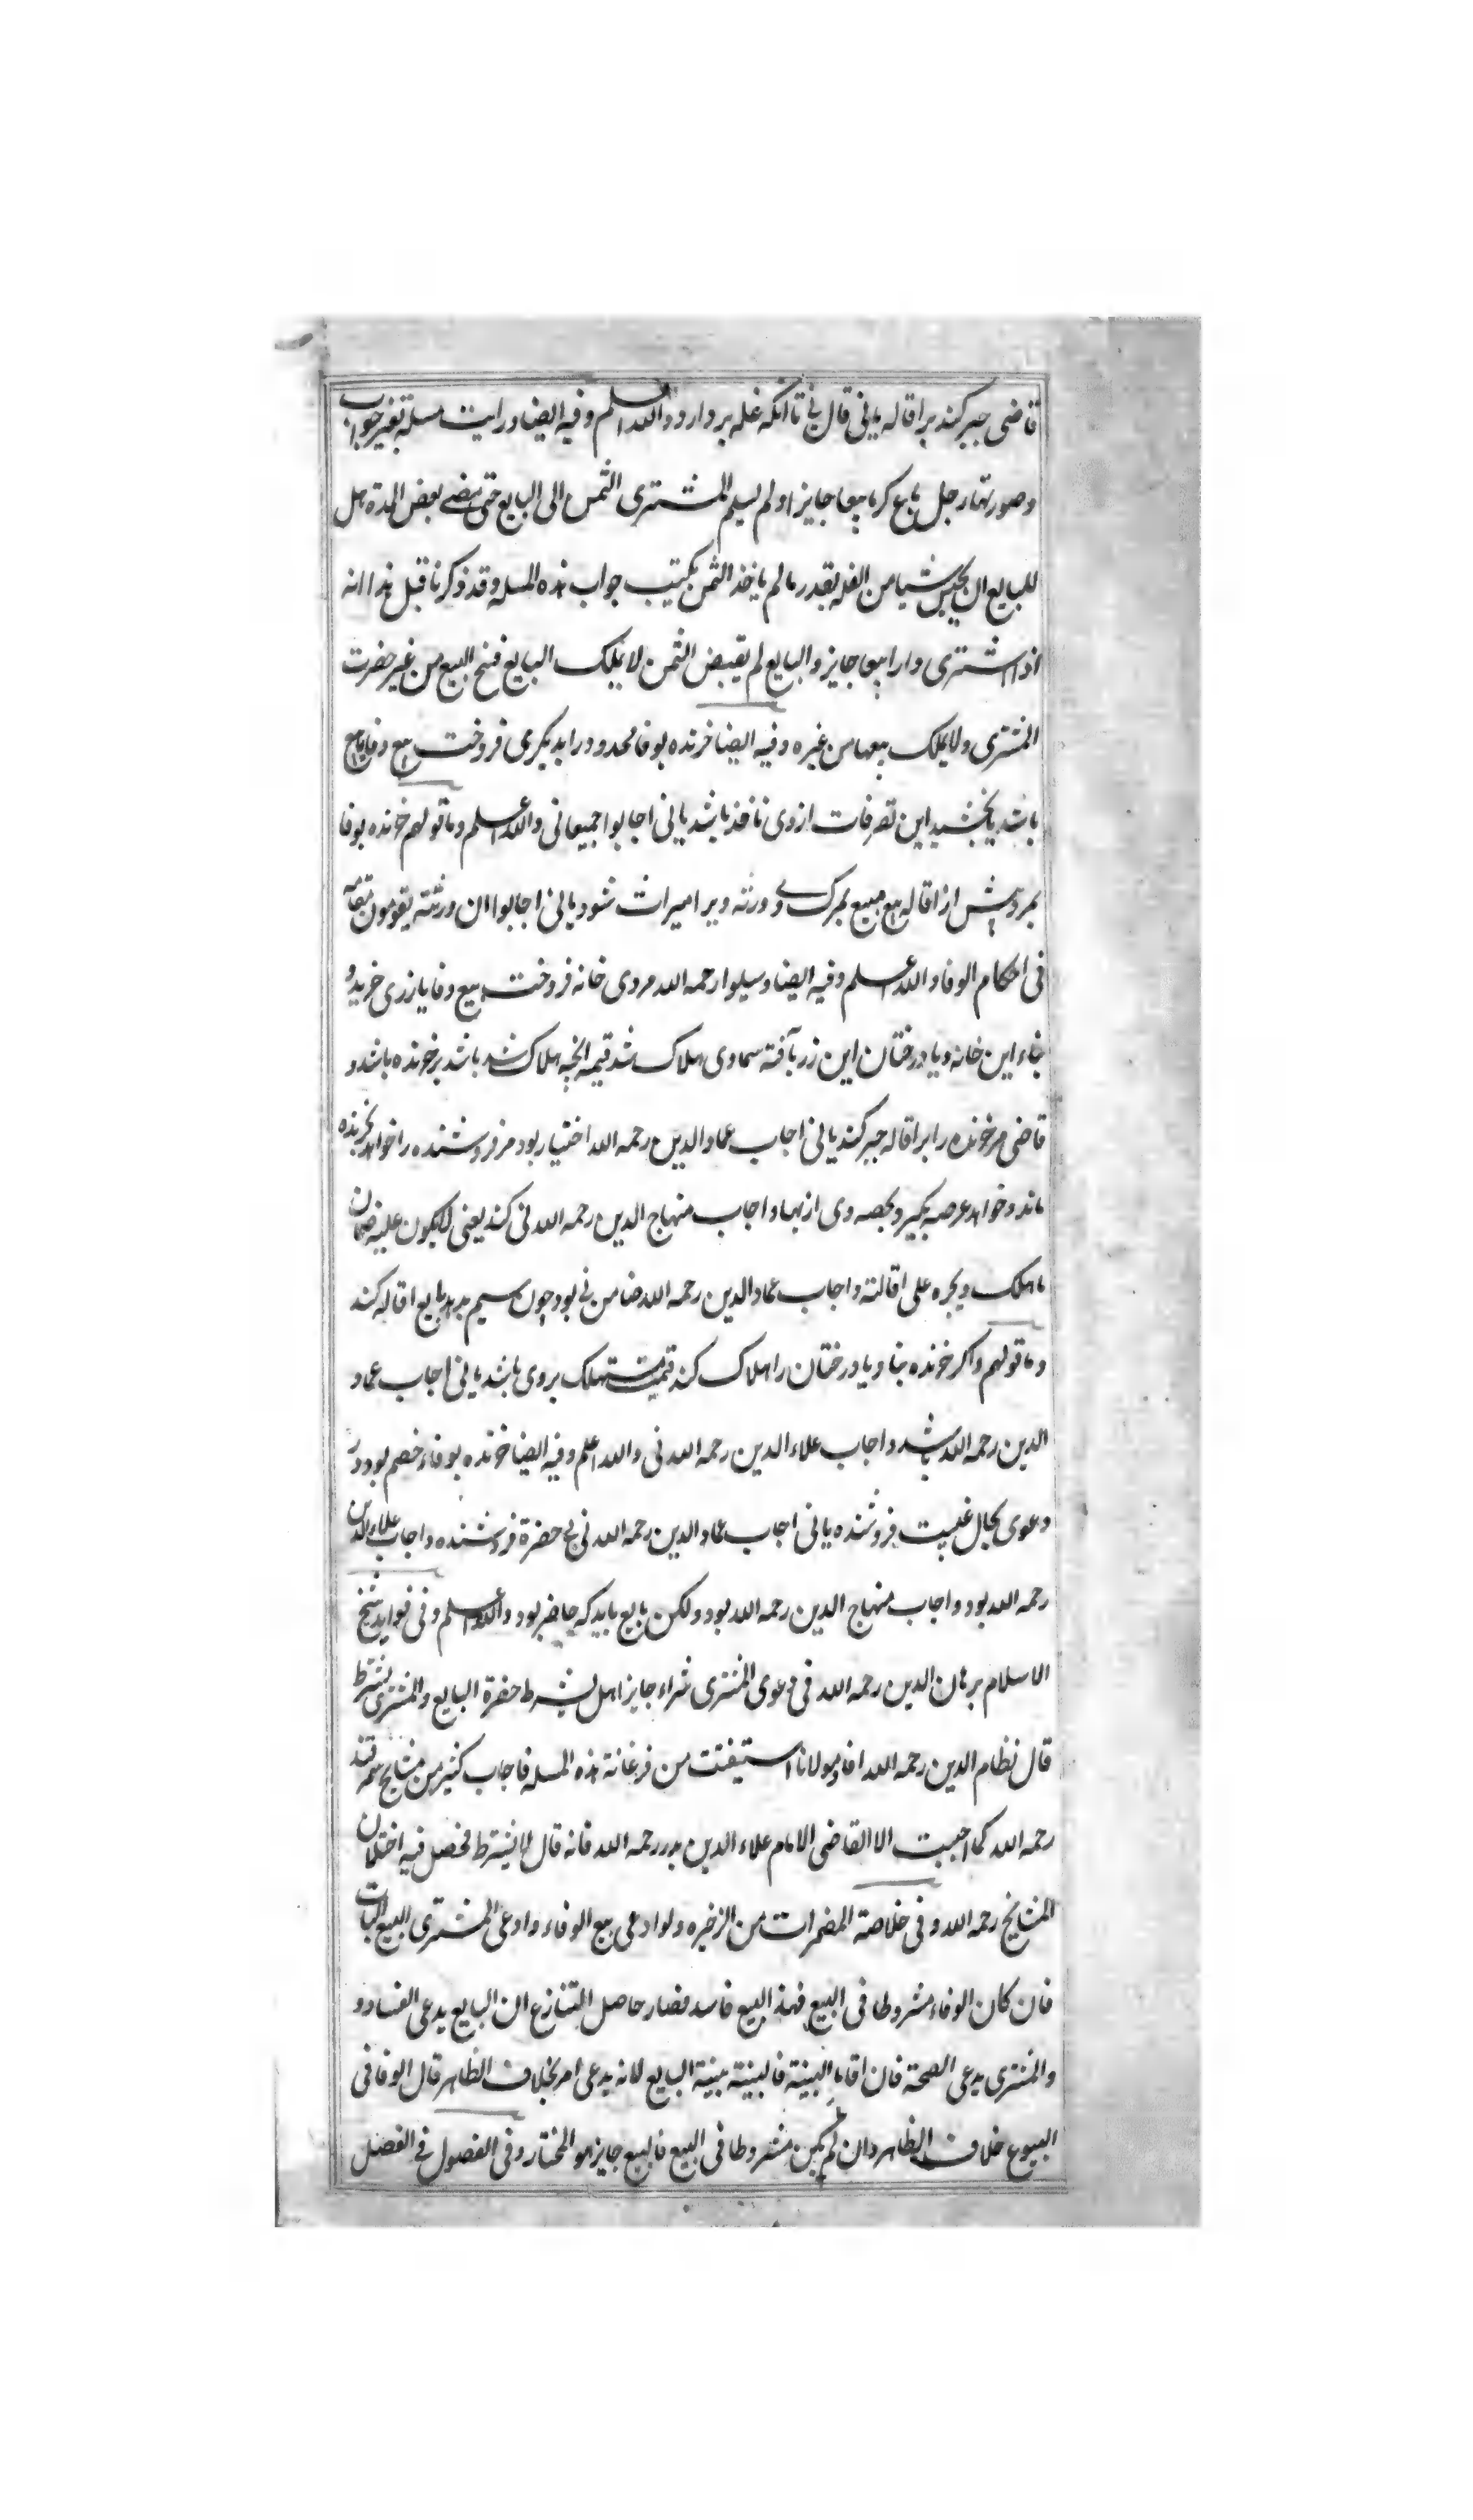 قاضی جبر کند بر اقاله یا نی قال نی تا آنکه غله بردارد والله اعلم وفیه ایضا ورایت مسله بغیر جواب
وصورتها رجل باع کرما بیعا جایزا ولم یسلم المشتری الثمن الی البایع حتی یمضی بعض المدة هل
للبایع ان یحبس شیا من الغله بقدر ما لم یاخذ الثمن یکتب جواب هذه المسله وقد ذکرنا قبل هذا انه
اذا اشتری دارا بیعا جایزا والبایع لم یقبض الثمن لا یملک البایع فسخ البیع من غیر حضرت
المشتری ولا یملک بیعها من غیره وفیه ایضا خرنده بوفا محدود را بدیکری فروخت بیع وفا یا بیع
باشد یا بخشید این تصرفات از وی نافذ باشد یا نی اجابوا جمیعا نی والله اعلم وما قولهم خرنده بوفا
بمرد پیش از اقاله بیع مبیع بمرک وی ورثه ویرا میراث شود یا نی اجابوا ان ورثته یقومون مقامه
فی احکام الوفا والله اعلم وفیه ایضا وسیلوا رحمه الله مردی خانه فروخت ببیع وفا یا رزی خرید و
بناء این خانه و یا درختان این رز بآفته سماوی هلاک شد قیمه انچه هلاک شد باشد بر خرنده باشد و
قاضی مر خرنده را بر اقاله جبر کند یا نی اجاب عماد الدین رحمه الله اختیار بود مر فروشنده را خواهد بخرنده
ماند و خواهد عرصه بگیرد بحصه وی از بها و اجاب منهاج الدین رحمه الله نی کند یعنی لا یکون علیه ضمان
ما هلک ویجبره علی اقالته واجاب عماد الدین رحمه الله ضامن نی بود چون سیم بدهد بایع اقاله کند
وما قولهم واکر خرنده بنا و یا درختان را هلاک کند قیمت مستهلک بر وی باشد یا نی اجاب عماد
الدین رحمه الله باشد واجاب علاء الدین رحمه الله نی والله اعلم وفیه ایضا خرنده بوفاء خصم بود در
دعوی بحال غیبت فروشنده یا نی اجاب عماد الدین رحمه الله نی بی حضرة فروشنده واجاب علاء الدین
رحمه الله بود واجاب منهاج الدین رحمه الله بود ولکن بایع باید که حاضر بود والله اعلم وفی فواید شیخ
الاسلام برهان الدین رحمه الله فی دعوی المشتری شراء جایزا هل یشترط حضرة البایع والمشتری یشترط
قال نظام الدین رحمه الله افاد مولانا استیفتت من فرغانة هذه المسله فاجاب کثیر من مشایخ سمرقند
رحمه الله کما اجبت الا القاضی الامام علاء الدین بدر رحمه الله فانه قال لا یشترط فحصل فیه اختلاف
المشایخ رحمه الله وفی خلاصة المضمرات من الذخیره ولو ادعی بیع الوفاء وادعی المشتری البیع البات
فان کان الوفاء مشروطا فی البیع فهذا البیع فاسد فصار حاصل التنازع ان البایع یدعی الفساد و
والمشتری یدعی الصحة فان اقاما البینة فالبینة بینة البایع لانه یدعی امر بخلاف الظاهر قال الوفا فی
البیوع خلاف الظاهر وان لم یکن مشروطا فی البیع فالبیع جایز هو المختار وفی الفصول فی الفصل